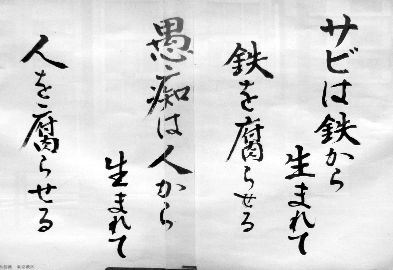 サビは鉄から
生まれて
鉄を腐らせる
愚痴は人から
生まれて
人を腐らせる